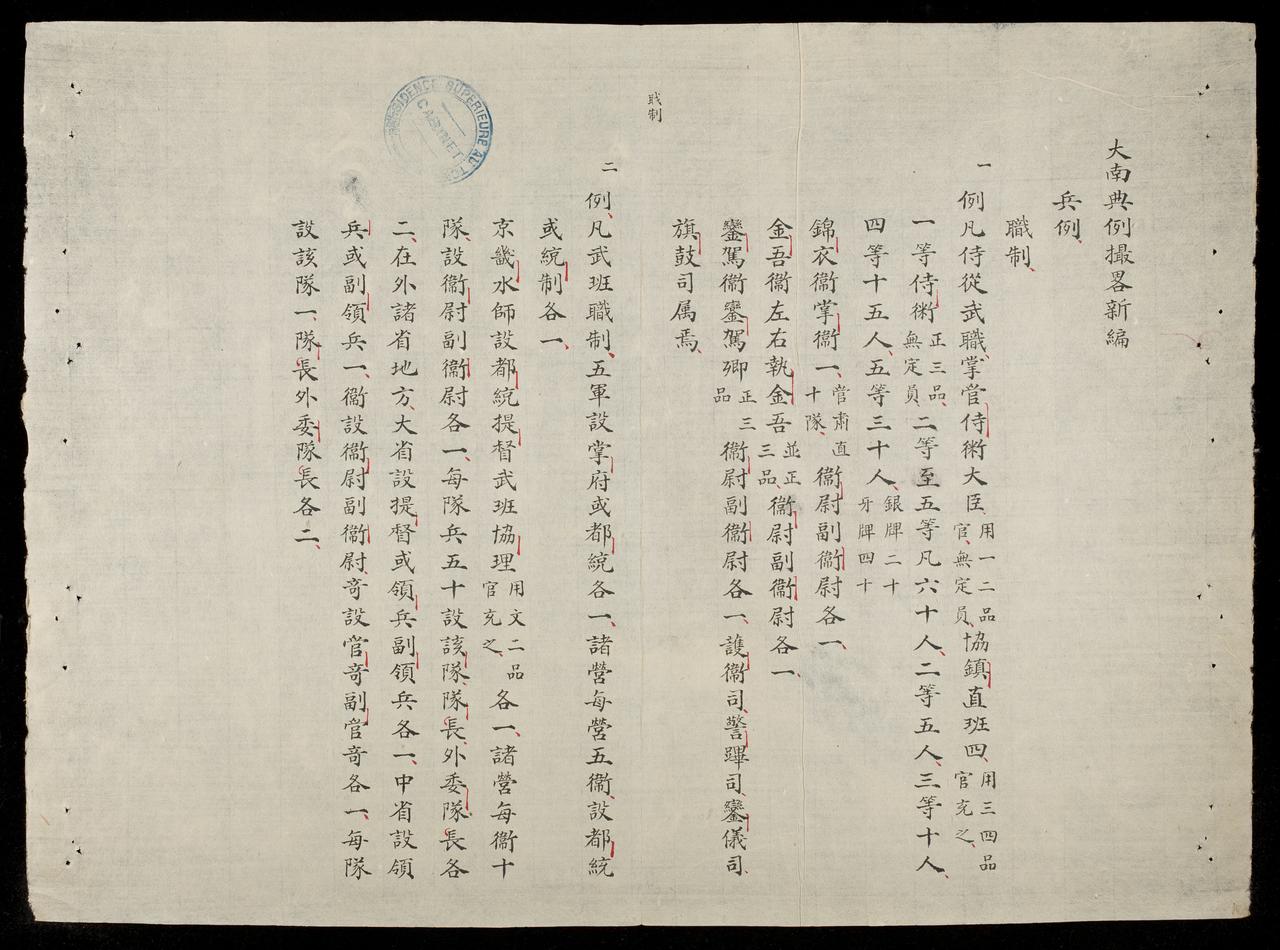 大南典例撮畧新編
兵例
職制
一 例凡侍從武職掌管侍衛大臣用一二品官無定員協鎮直班四用三四品官充之
一等侍衛正三品無定員二等至五等凡六十人二等五人三等十人
四等十五人五等三十人銀牌二十牙牌四十
錦衣衞掌衞一管肅直十隊衞尉副衞尉各一
金吾衞左右執金吾並正三品衞尉副衞尉各一
鑾駕衞鑾駕卿正三品衞尉副衞尉各一護衞司警蹕司鑾儀司
旗鼓司属焉
戠制
二 例凡武班職制五軍設掌府或都統各一諸營每營五衞設都統
或統制各一
京畿水師設都統提督武班協理用文二品官充之各一諸營每衞十
隊設衞尉副衞尉各一每隊兵五十設該隊隊長外委隊長各
二在外諸省地方大省設提督或領兵副領兵各一中省設領
兵或副領兵一衞設衞尉副衞尉竒設管竒副管竒各一每隊
設該隊一隊長外委隊長各二
RESIDENCE SUPERIEURE AU TON
CABINET